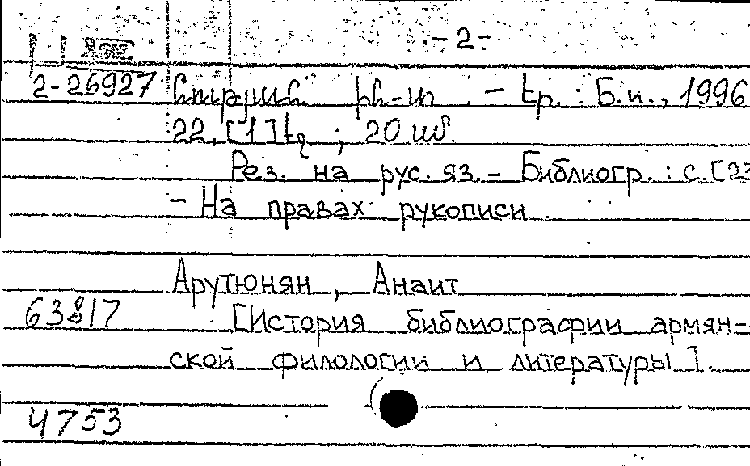 -2-
2-26927 ին-տ. - Եր. : Б.и., 1996
22, [1] էջ ; 20 սմ
Рез. на рус. яз. - Библиогр. : с. [23
- На правах рукописи
Арутюнян, Анаит
63817 [История библиографии армян-
ской филологии и литературы].
4753